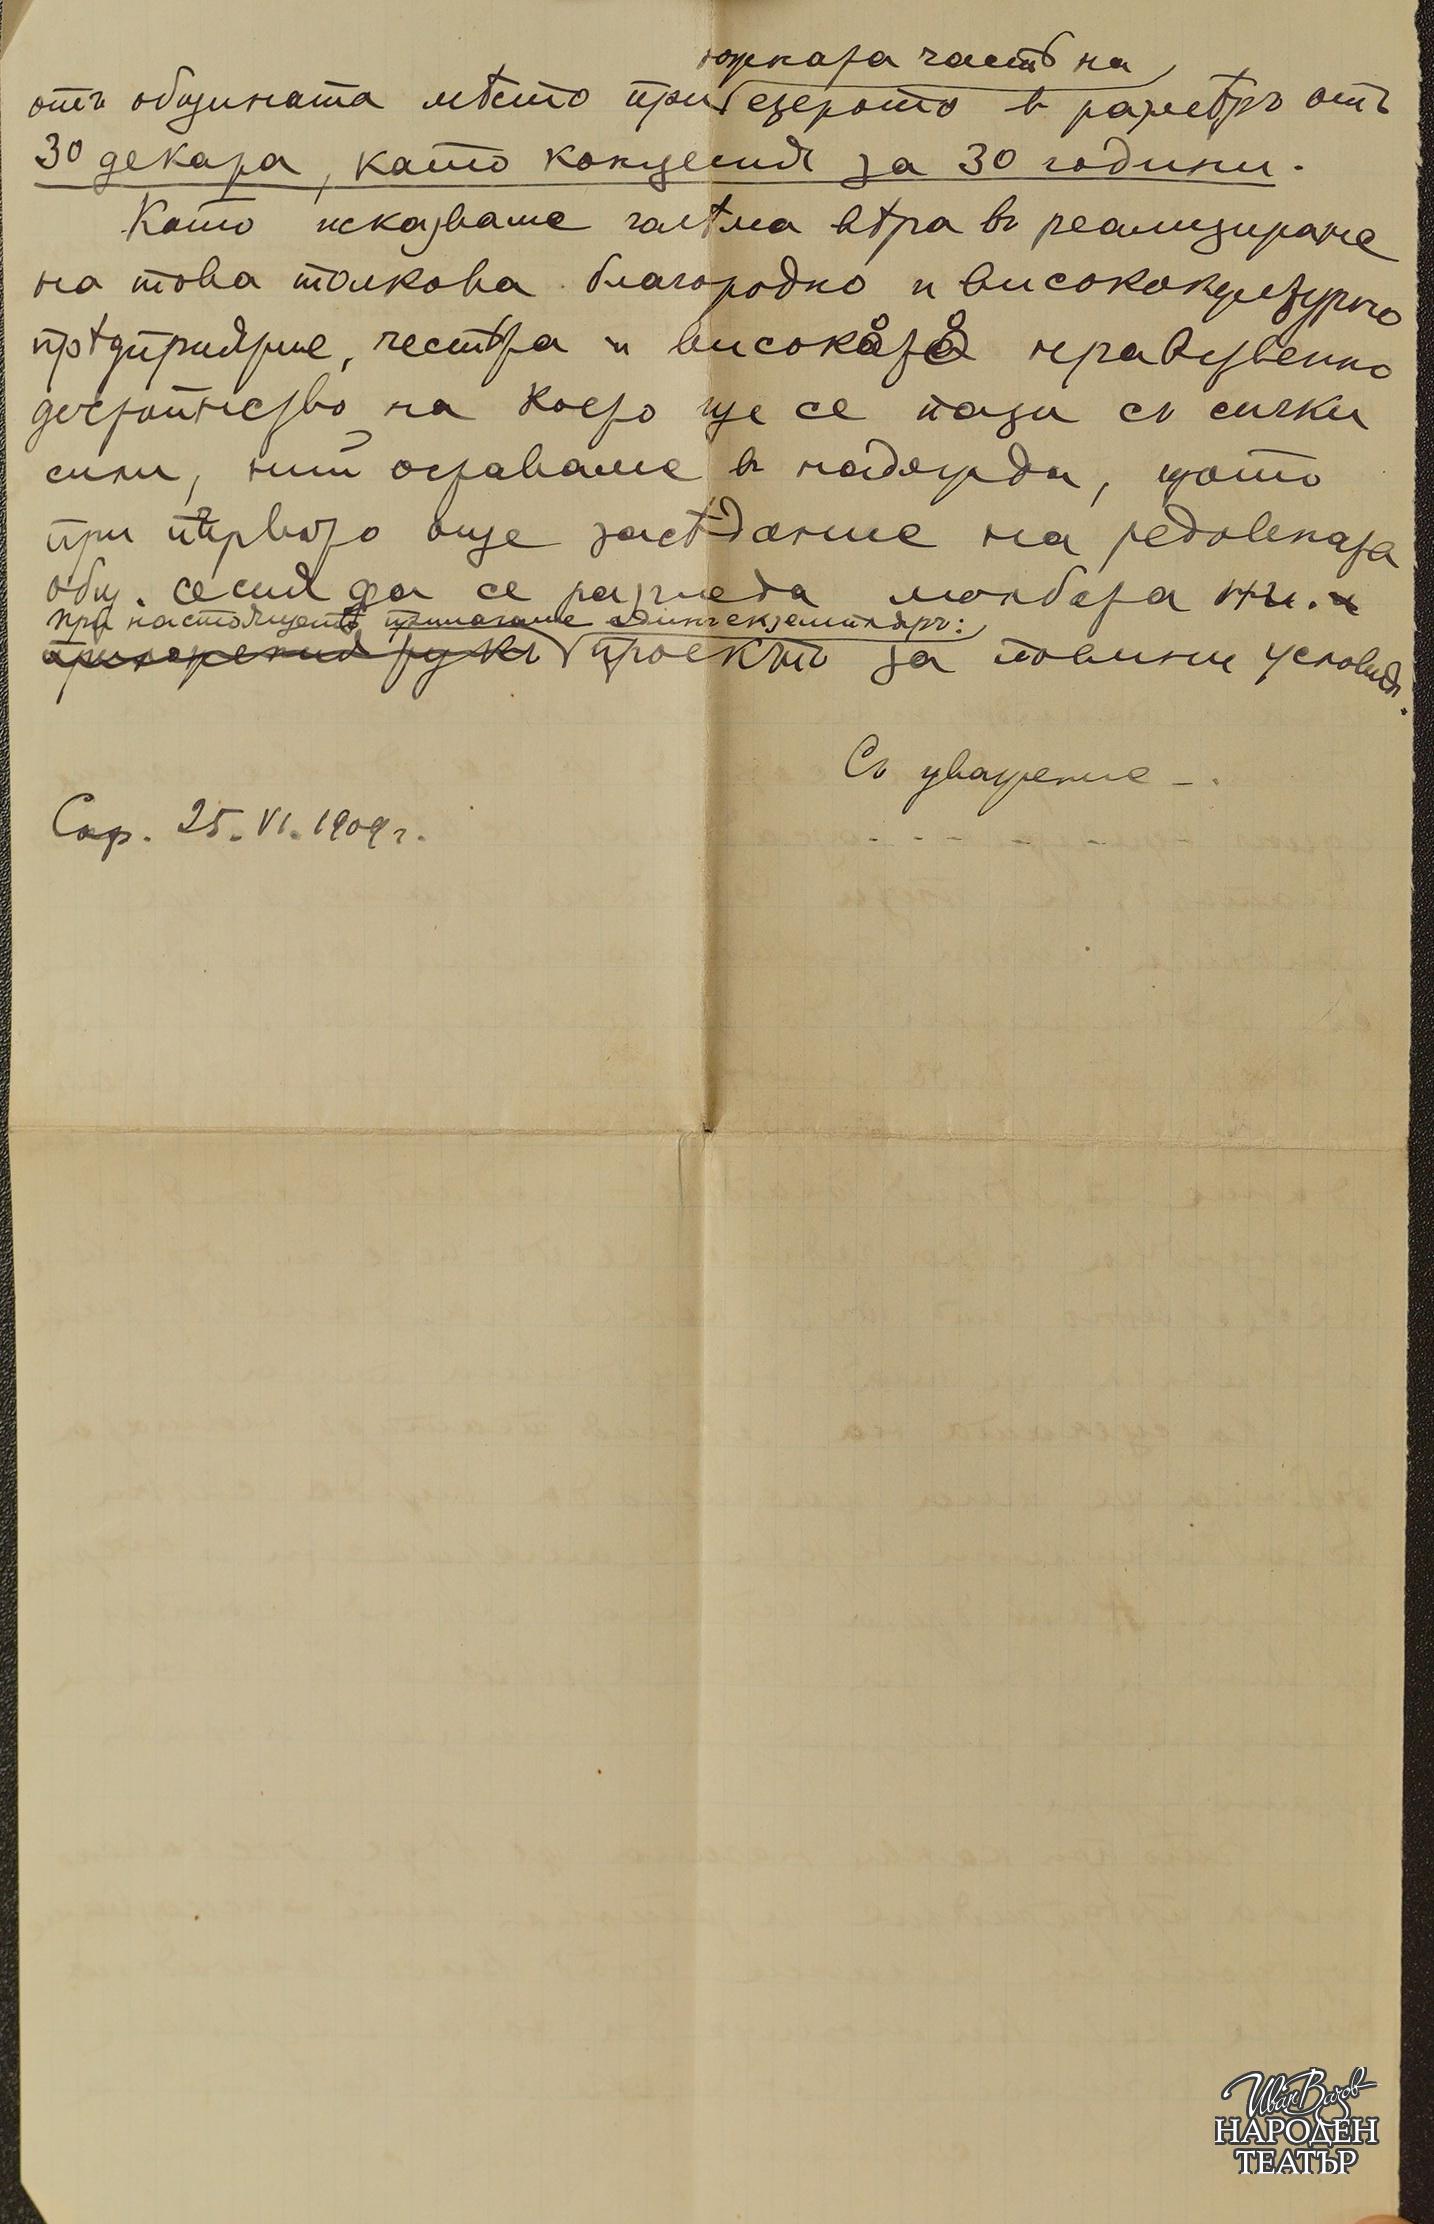 южната часть на
отъ общината мѣсто при езерото въ размѣръ отъ
30 декара, като концесия за 30 години.
Като исказваме голѣма вѣра въ реализиране
на това толкова благородно и висококултурно
прѣдприятие, честьта и високото нравственно
достойнство на което ще се пази съ сички
сили, ний оставаме въ надежда, щото
при първото още засѣдание на редовната
общ. сесия да се разгледа молбата ни.
При настоящето прилагаме единъ екземпляръ:
приложения рукъ проектъ за поемни условия.
Съ уважение –.
Соф. 25.VI.1909 г.
Иван Вазов
НАРОДЕН
ТЕАТЪР